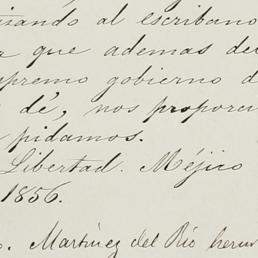 izando al escribano
que ademas de
upremo gobierno d
dé, nos proporci
pidamos.
Libertad. Méjico
1856.
Martinez del Rio herm